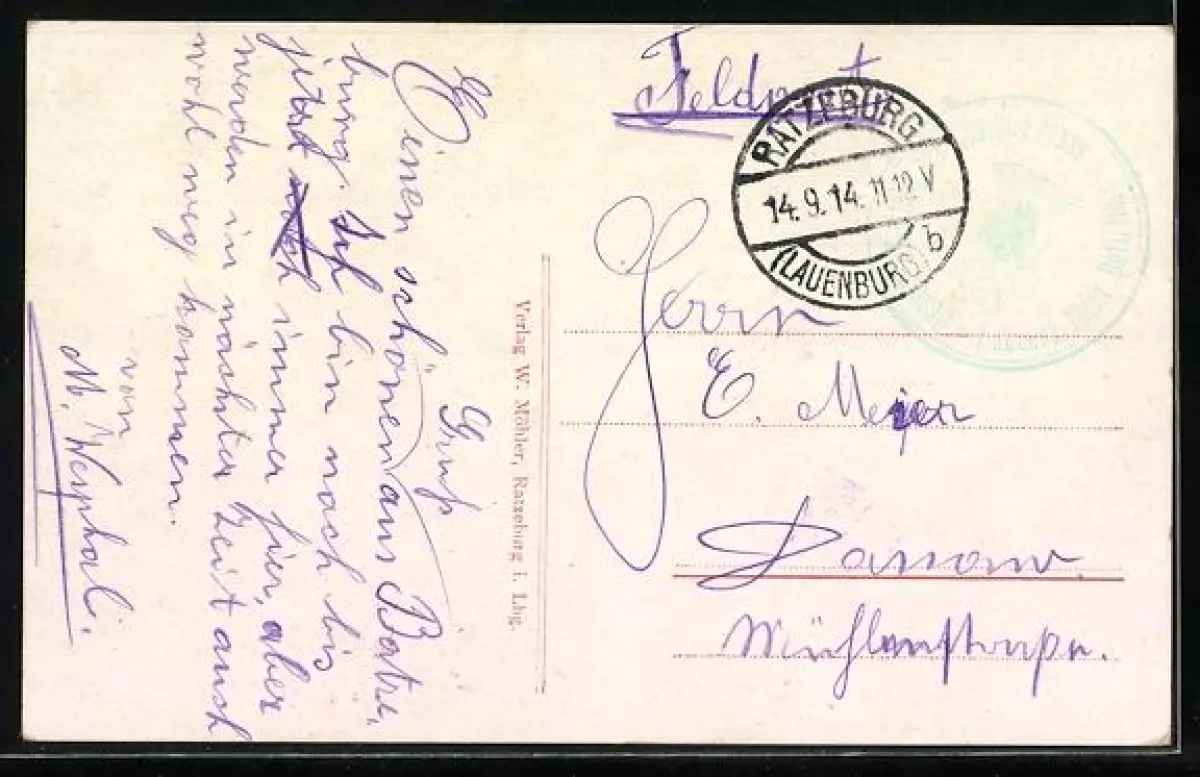 Feldpost
RATZEBURG
14.9.14. 11-12 V
(LAUENBURG) b
Herrn
E. Meier
Mühlenstraße.
Verlag W. Möhler, Ratzeburg i. Lbg.
Gruß
Einen schönen aus Ratze„
burg. Ich bin noch bis
jetzt noch immer hier, aber
werden in nächster Zeit auch
wohl weg kommen.
von